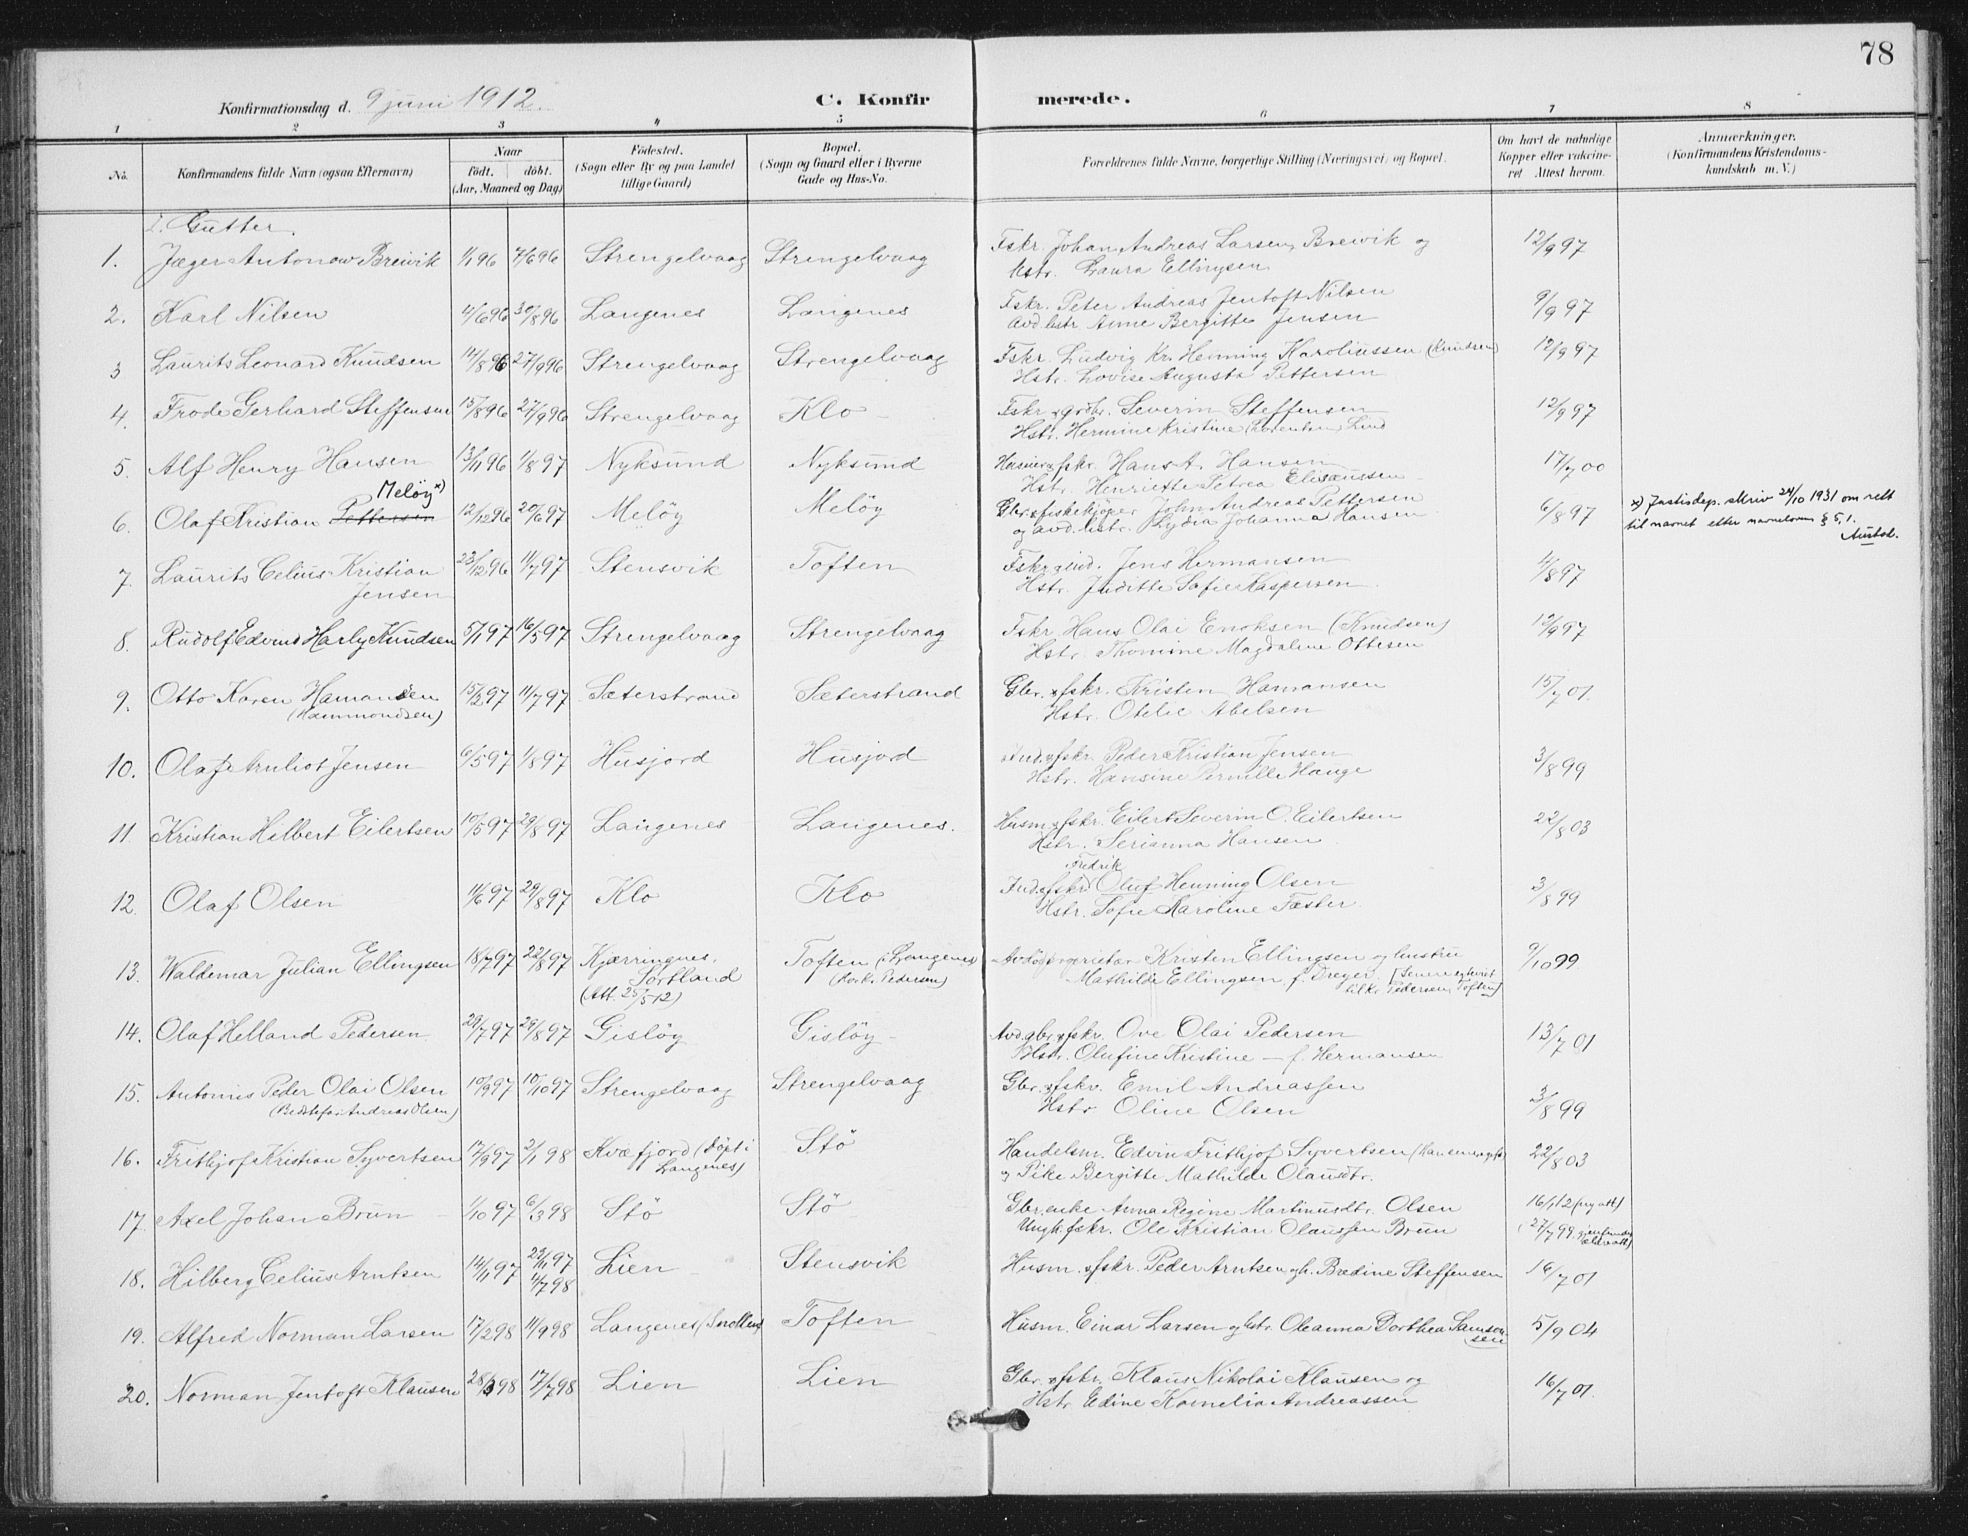 78
Konfirmationsdag d. 9 juni 1912.
C. Konfirmerede.
1 2 3 4 5 6 7 8
No. Konfirmandens fulde Navn (ogsaa Efternavn) Naar födt. döbt. (Aar, Maaned og Dag) Födested. (Sogn eller By og paa Landet tillige Gaard) Bopæl. (Sogn og Gaard eller i Byerne Gade og Hus-No. Forældrenes fulde Navne, borgerlige Stilling (Næringsvei) og Bopæl. Om havt de naturlige Kopper eller vakcineret Attest herom. Anmærkninger. (Konfirmandens Kristendomskundskab m. V.)
Gutter.
1. Jæger Antonow Breivik 1/1 96 7/6 96 Strengelvaag Strengelvaag Fskr. Johan Andreas Larsen Breivik og 12/9 97
Hstr. Laura Ellingsen
2. Karl Nilsen 4/6 96 30/8 96 Langenes Langenes Fskr. Peter Andreas Jentoft Nilsen 9/9 97
Avd. hstr. Anne Bergitte Jensen
3 Laurits Leonard Knudsen 14/8 96 27/9 96 Strengelvaag Strengelvaag Fskr. Ludvig Kr. Henning Karoliussen (Knudsen) 12/9 97
Hstr. Lovise Augusta Pettersen
4. Frode Gerhard Steffensen 15/8 96 27/9 96 Strengelvaag Klo Fskr. & grdbr. Severin Steffensen 12/9 97
Hstr. Hermine Kristine Lind
5. Alf Henry Hansen 13/11 96 1/8 97 Nyksund Nyksund Husm & fskr. Hans A. Hansen 17/7 00
Hstr. Henriette Petrea Elisæussen
Meløy x)
6. Olaf Kristian Pettersen 12/12 96 20/6 97 Meløy Meløy Gbr. & fiskekjøper John Andreas Pettersen 6/8 97 x) Justisdep. skriv 24/10 1931 om rett
og avd. hstr. Lydia Johanna Hansen til navnet etter navneloven § 5, 1.
Austad.
7. Laurits Celius Kristian 23/12 96 11/7 97 Stensvik Toften Fskr. Jens Hermansen 4/8 97
Jensen Hstr. Juditte Sofie Kaspersen
8. Rudolf Edvind Harly Knudsen 5/1 97 16/5 97 Strengelvaag Strengelvaag Fskr. Hans Olai Enoksen (Knudsen) 12/9 97
Hstr. Thomine Magdalene Ottesen
9. Otto Karen Hamansen 15/2 97 11/7 97 Sæterstrand Sæterstrand Gbr. & fskr. Kristen Hamansen 15/7 01.
(Hammondsen) Hstr. Otelie Abelsen
10. Olaf Arnhot Jensen 6/5 97 1/8 97 Husjord Husjord Ind. & fskr. Peder Kristian Jensen 3/8 99
Hstr. Hansine Pernille Hauge
11. Kristian Hilbert Eilertsen 10/5 97 29/8 97 Langenes Langenes. Husm. & fskr. Eilert Severin O. Eilertsen 22/8 03
Hstr. Serianna Hansen
Fredrik
12. Olaf Olsen 11/6 97 29/8 97 Klo Klo Ind. & fskr. Oluf Henning Olsen 3/8 99
Hstr. Sofie Karoline Fæster.
13. Waldemar Julian Ellingsen 18/7 97 22/8 97 Kjærringnes, Toften (Langenes) Avdöd proprietær Kristen Ellingsen og hustru 9/10 99
Sortland Mathilde Ellingsen f. Dreyer.
(Att. 25/5 12)
14. Olaf Helland Pedersen 29/7 97 29/8 97 Gisløy Gisløy Avd gbr. & fskr. Ove Olai Pedersen 13/7 01
Hstr. Olufine Kristine — f. Hermansen
15. Antonius Peder Olai Olsen 10/9 97 10/10 97 Strengelvaag Strengelvaag Gbr. & fskr. Emil Andreassen 3/8 99
(Bedstefar Andreas Olsen) Hstr. Oline Olsen
16. Frithjof Kristian Syvertsen 17/9 97 2/1 98 Kvæfjord (Döpt i Stö Handelsm. Edvin Frithjof Syvertsen 22/8 03
Langenes) og Pike Bergitte Mathilde Olausdtr.
17. Axel Johan Brun 1/10 97 6/3 98 Stö Stö Gbr. enke Anna Regine Martinusdtr. Olsen 16/1 12 (ny att)
Ungk. fskr. Ole Kristian Olaussen Brun (27/7 99
18. Hilberg Celius Arntsen 14/11 97 29/11 97 Lien Stensvik Husm. & fskr. Peder Arntsen og h. Brædine Steffensen 16/7 01
4/7 98
19. Alfred Norman Larsen 17/2 98 11/9 98 Langenes Toften Husm. Einar Larsen og hstr. Oleanna Dorthea Samson- 5/9 04
sen
20. Norman Jentoft Klausen 28/3 98 17/7 98 Lien Lien Gbr. & fskr. Klaus Nikolai Klausen og 16/7 01.
Hstr. Edine Kornelia Andreassen